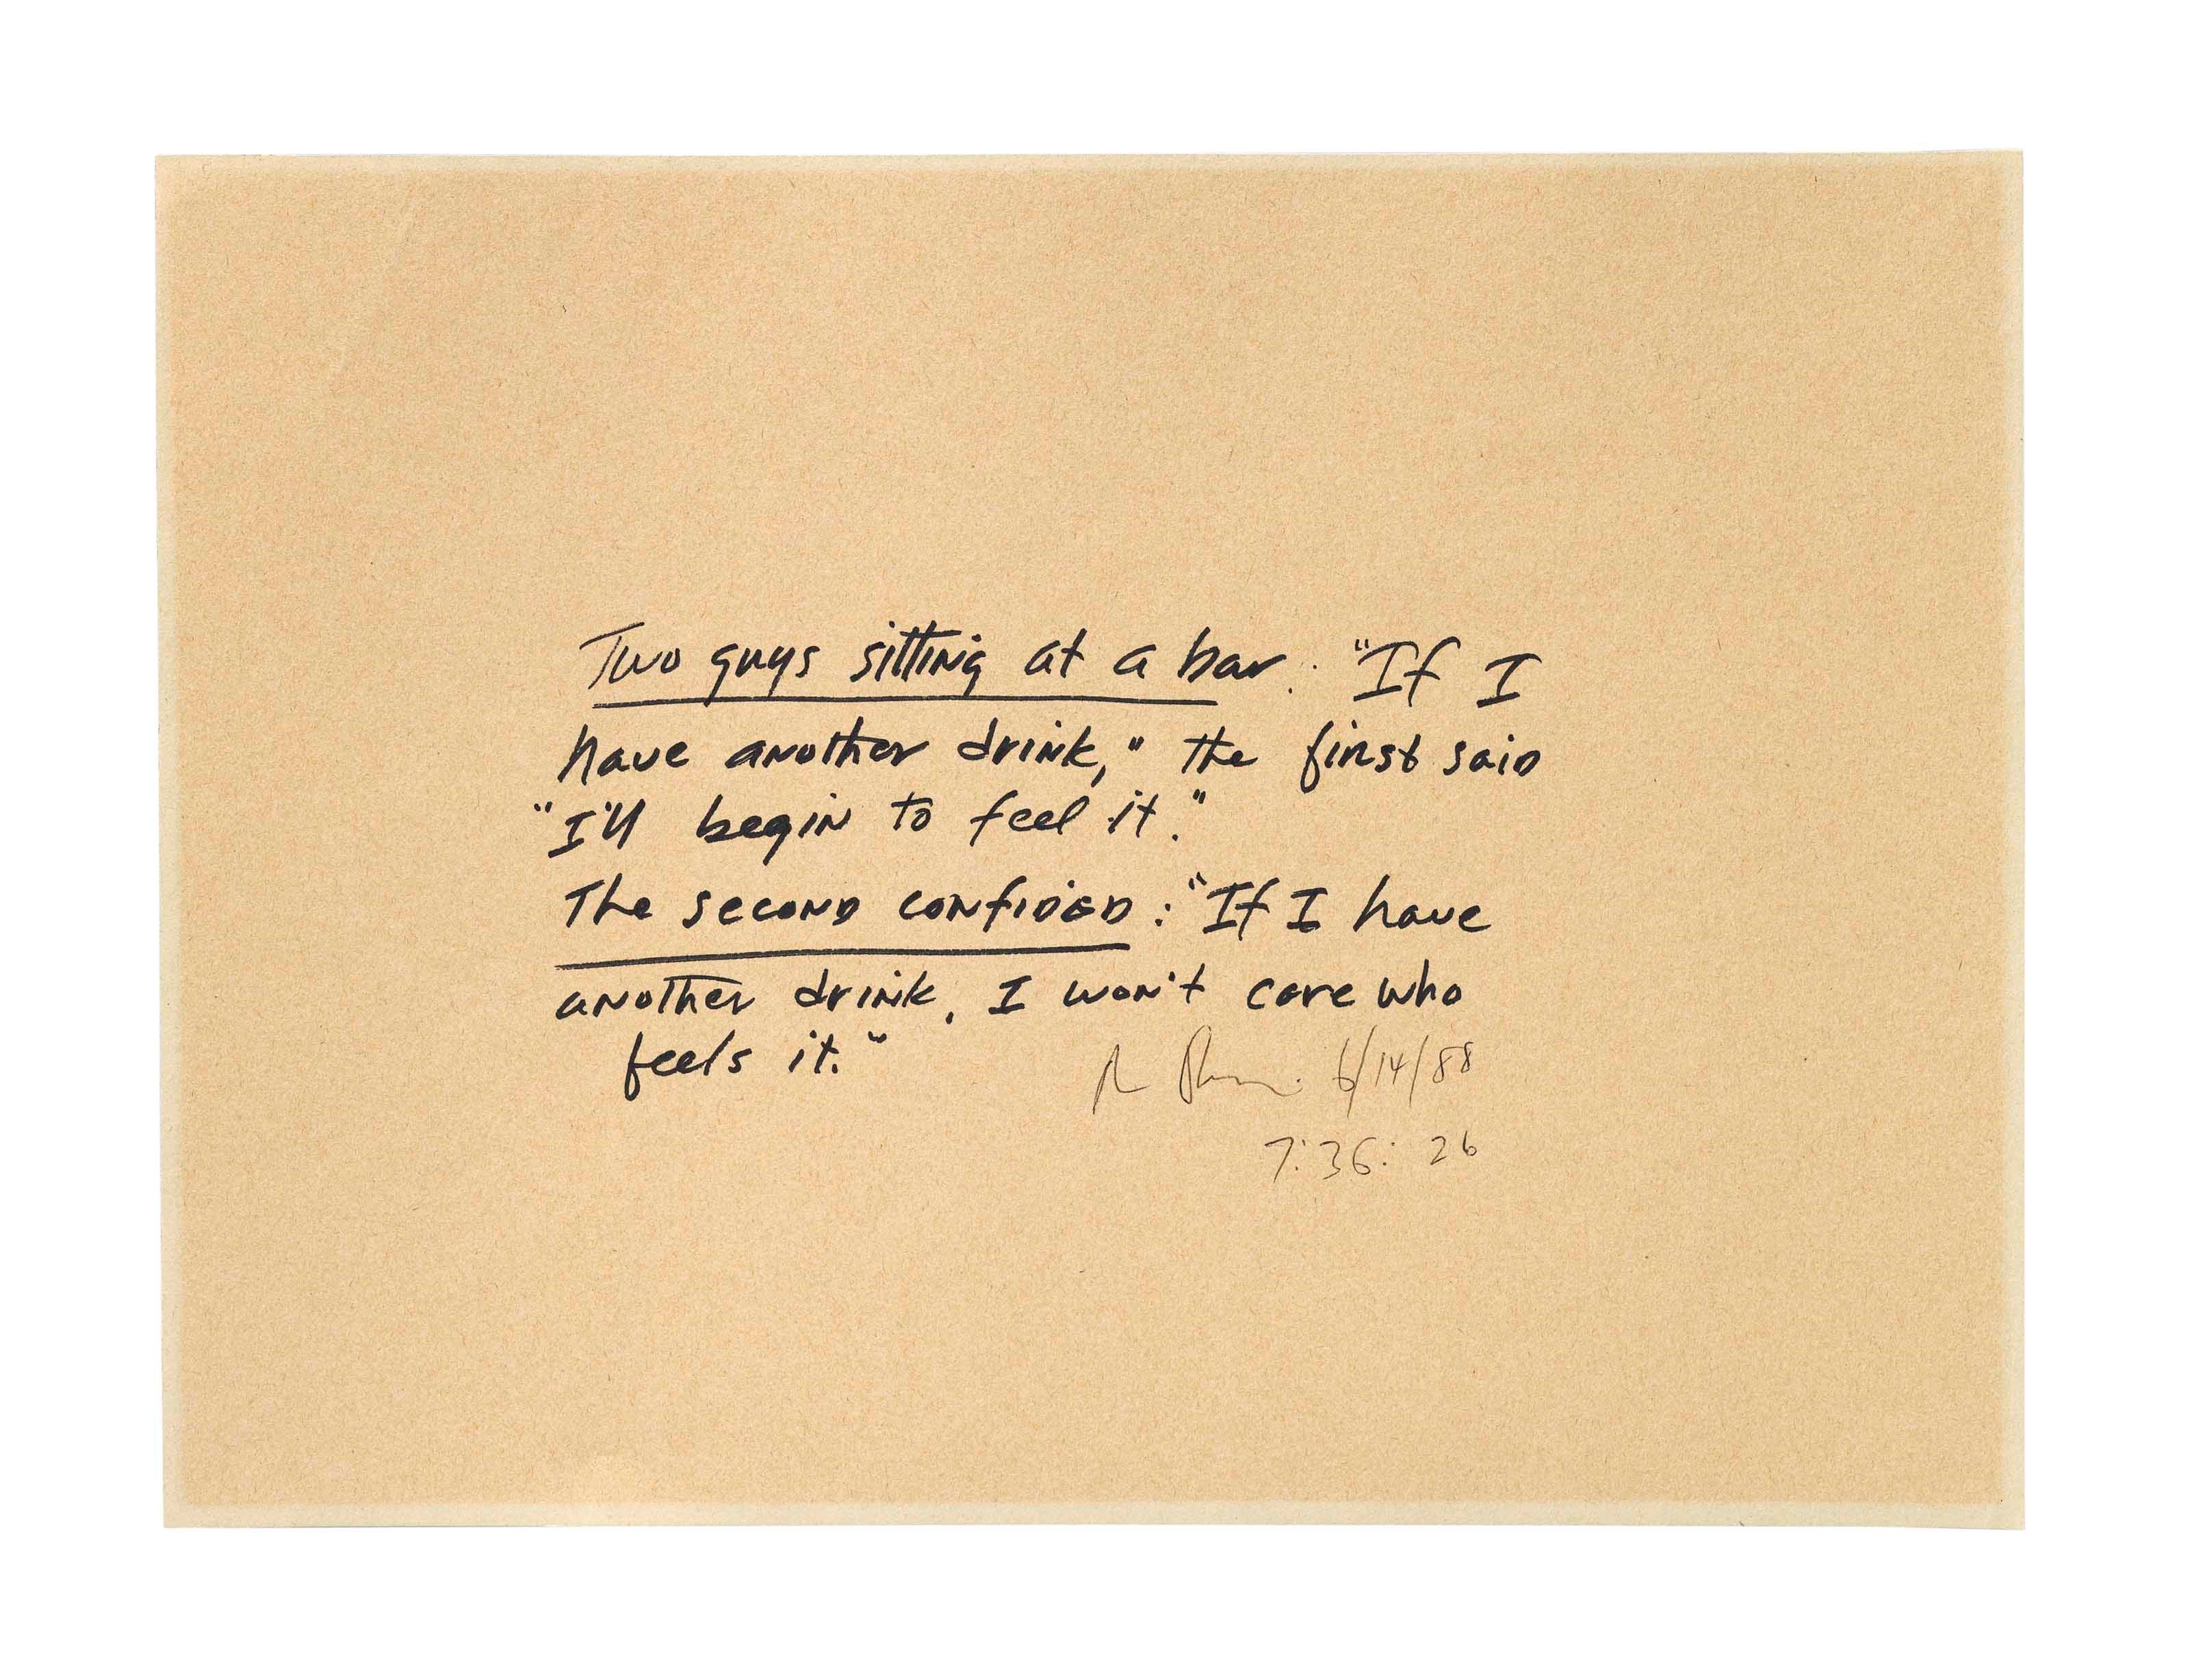 Two guys sitting at a bar. "If I
have another drink," the first said
"I'll begin to feel it."
The second confided: "If I have
another drink, I won't care who
feels it."
6/14/88
7:36:26